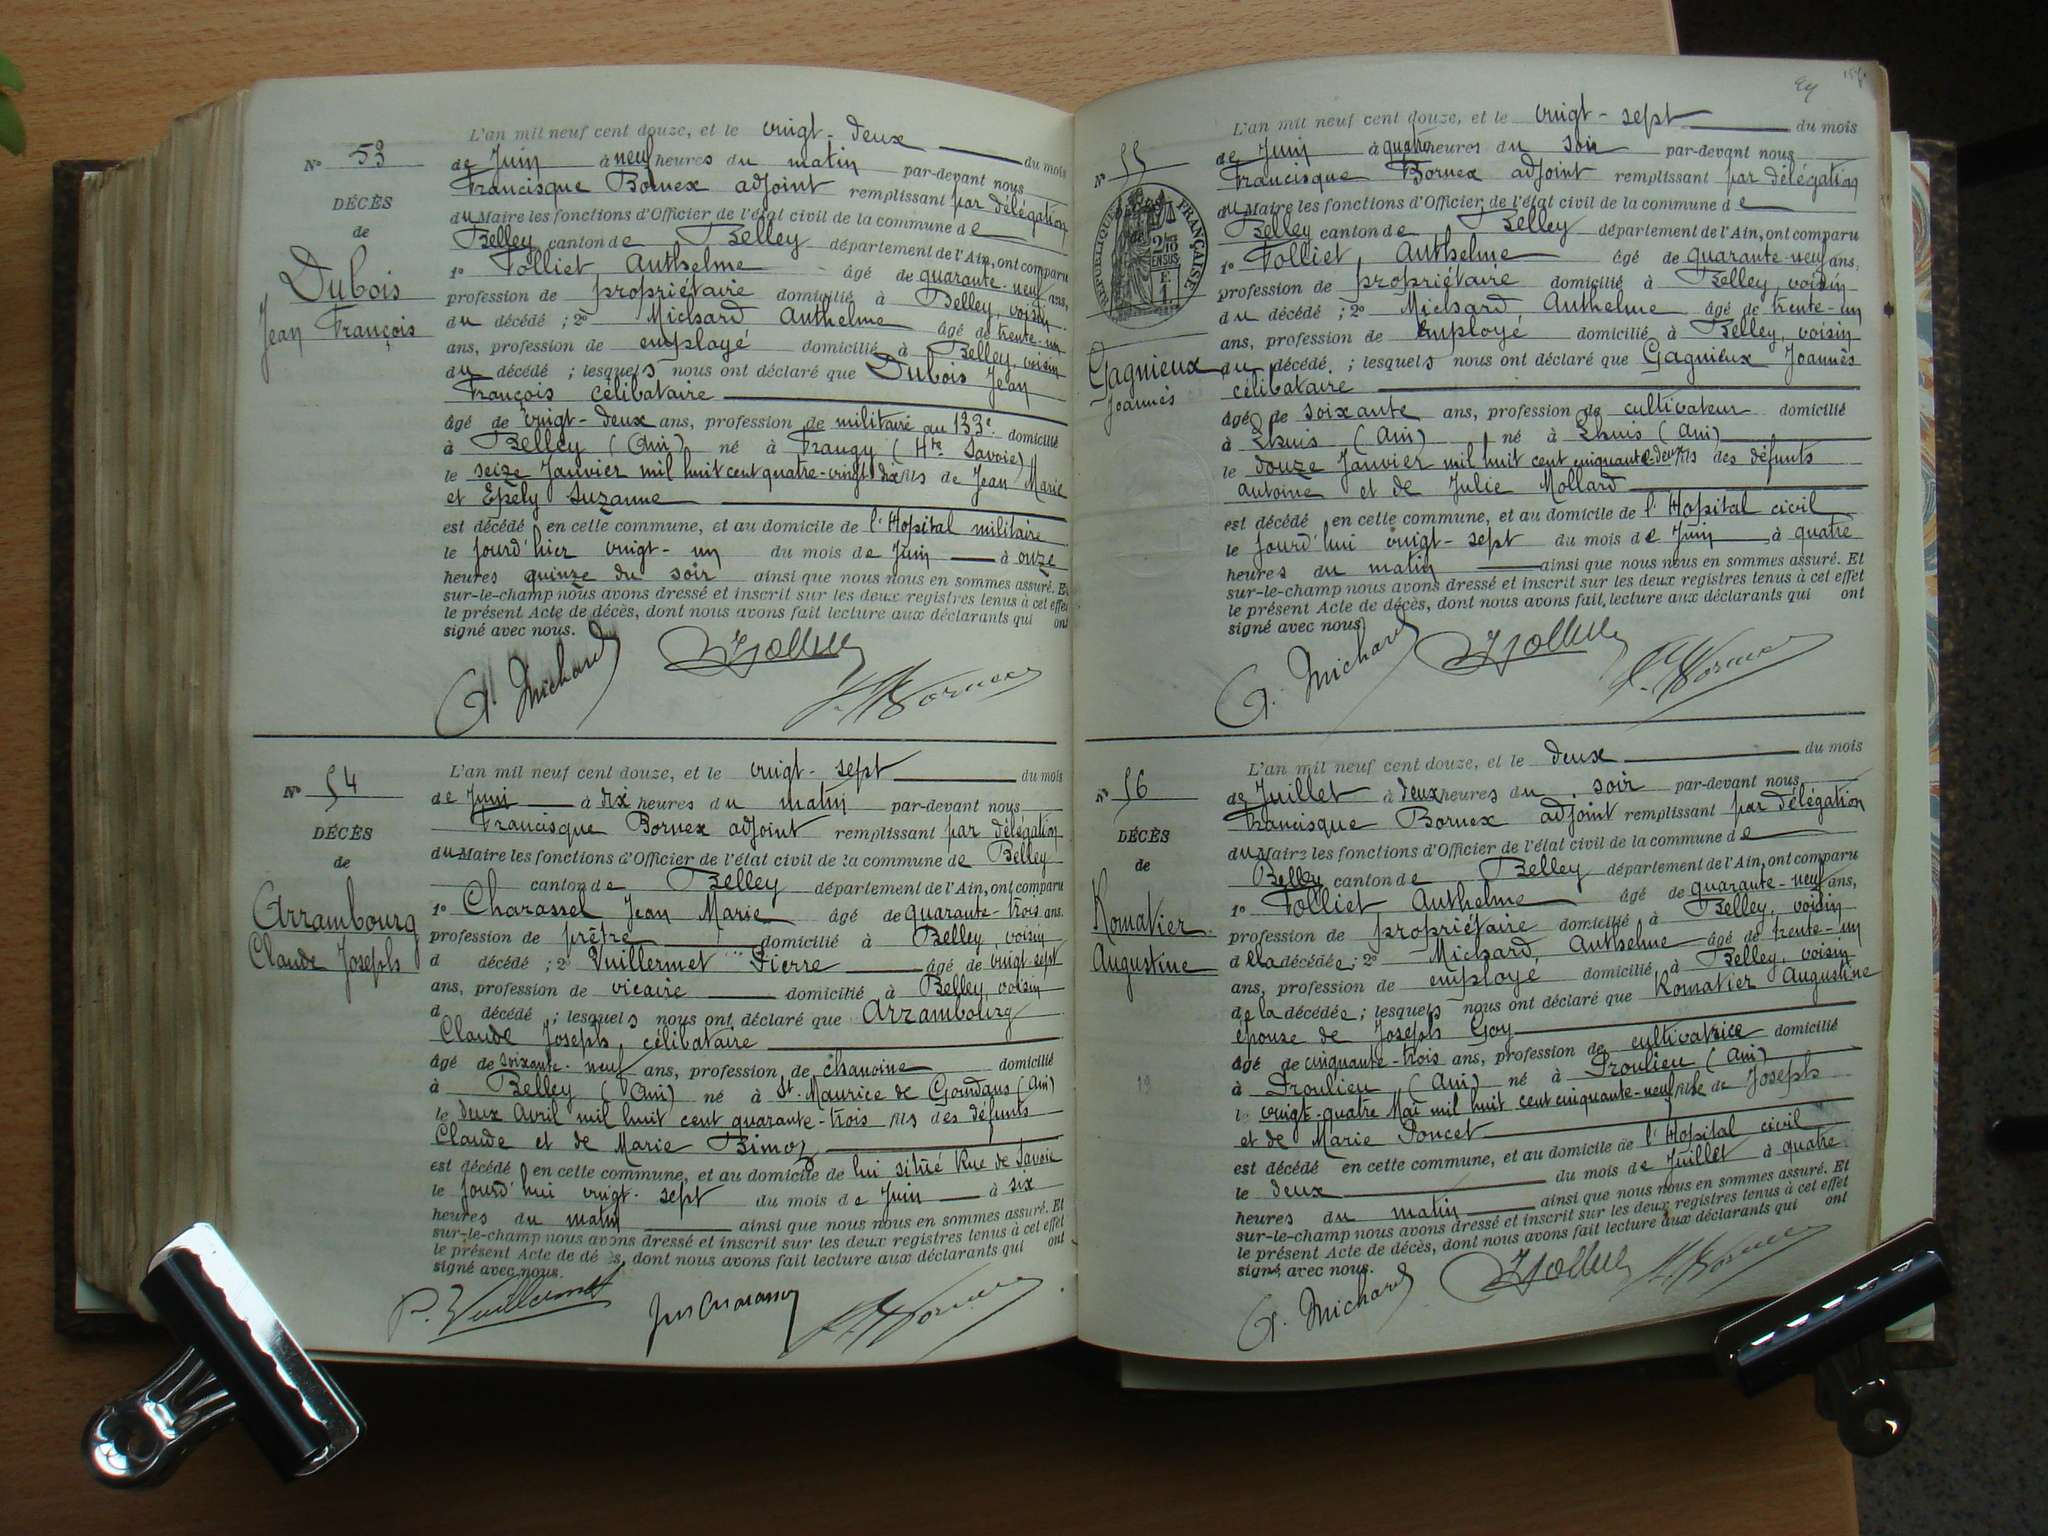 L'an mil neuf cent douze, et le vingt-deux du mois
No 53
de Juin à neuf heures du matin par-devant nous
Francisque Bornex adjoint remplissant par délégation
DÉCÈS
du Maire les fonctions d'Officier de l'état civil de la commune de
de
Belley canton de Belley département de l'Ain, ont comparu
Dubois
1o Folliet, Anthelme âgé de quarante-neuf ans,
Jean François
profession de propriétaire domicilié à Belley, voisin
du décédé ; 2o Michard Anthelme âgé de trente-un
ans, profession de employé domicilié à Belley, voisin
du décédé ; lesquels nous ont déclaré que Dubois Jean
François célibataire
âgé de vingt-deux ans, profession de militaire au 133e domicilié
à Belley (Ain) né à Frangy (Hte Savoie)
le seize Janvier mil huit cent quatre-vingt dix fils de Jean Marie
et Epely Suzanne
est décédé en cette commune, et au domicile de l'Hopital militaire
le jourd'hier vingt-un du mois de Juin à onze
heures quinze du soir ainsi que nous nous en sommes assuré. Et
sur-le-champ nous avons dressé et inscrit sur les deux registres tenus à cet effet
le présent Acte de décès, dont nous avons fait lecture aux déclarants qui ont
signé avec nous.
A. Michard Folliet F. Bornex
L'an mil neuf cent douze, et le vingt-sept du mois
No 54
de Juin à dix heures du matin par-devant nous
Francisque Bornex adjoint remplissant par délégation
DÉCÈS
du Maire les fonctions d'Officier de l'état civil de la commune de Belley
de
canton de Belley département de l'Ain, ont comparu
Arrambourg
1o Charassel Jean Marie âgé de quarante-trois ans,
Claude Joseph
profession de prêtre domicilié à Belley, voisin
d décédé ; 2o Vuillermet Pierre âgé de vingt sept
ans, profession de vicaire domicilié à Belley, voisin
d décédé ; lesquels nous ont déclaré que Arrambourg
Claude Joseph, célibataire
âgé de soixante-neuf ans, profession de chanoine domicilié
à Belley (Ain) né à St. Maurice de Gourdans (Ain)
le deux Avril mil huit cent quarante-trois fils des défunts
Claude et de Marie Bimoz
est décédé en cette commune, et au domicile de lui sitûé Rue de Savoie
le jourd'hui vingt-sept du mois de Juin à six
heures du matin ainsi que nous nous en sommes assuré. Et
sur-le-champ nous avons dressé et inscrit sur les deux registres tenus à cet effet
le présent Acte de décès, dont nous avons fait lecture aux déclarants qui ont
signé avec nous.
P. Vuillermet F. Bornex
L'an mil neuf cent douze, et le vingt-sept du mois
No 55
de Juin à quatre heures du soir par-devant nous
Francisque Bornex adjoint remplissant par délégation
RÉPUBLIQUE FRANÇAISE
2/10 EN SUS
du Maire les fonctions d'Officier de l'état civil de la commune de
Belley canton de Belley département de l'Ain, ont comparu
1o Folliet, Anthelme âgé de quarante-neuf ans,
profession de propriétaire domicilié à Belley, voisin
du décédé ; 2o Michard Anthelme âgé de trente-un
ans, profession de employé domicilié à Belley, voisin
Gagnieux
Joannès
du décédé ; lesquels nous ont déclaré que Gagnieux Joannès
célibataire
âgé de soixante ans, profession de cultivateur domicilié
à Lhuis (Ain) né à Lhuis (Ain)
le douze Janvier mil huit cent cinquante-deux fils des défunts
Antoine et de Julie Mollard
est décédé en cette commune, et au domicile de l'Hopital civil
le jourd'hui vingt-sept du mois de Juin à quatre
heures du matin ainsi que nous nous en sommes assuré. Et
sur-le-champ nous avons dressé et inscrit sur les deux registres tenus à cet effet
le présent Acte de décès, dont nous avons fait lecture aux déclarants qui ont
signé avec nous.
A. Michard Folliet F. Bornex
L'an mil neuf cent douze, et le deux du mois
No 56
de Juillet à deux heures du soir par-devant nous
Francisque Bornex adjoint remplissant par délégation
DÉCÈS
du Maire les fonctions d'Officier de l'état civil de la commune de
de
Belley canton de Belley département de l'Ain, ont comparu
Romatier
1o Folliet Anthelme âgé de quarante-neuf ans,
Augustine
profession de propriétaire domicilié à Belley, voisin
de la décédée ; 2o Michard, Anthelme âgé de trente-un
ans, profession de employé domicilié à Belley, voisin
de la décédée ; lesquels nous ont déclaré que Romatier Augustine
épouse de Joseph Goy
âgé de cinquante-trois ans, profession de cultivatrice domicilié
à Proulieu (Ain) né à Proulieu (Ain)
le vingt-quatre Mai mil huit cent cinquante-neuf fille de Joseph
et de Marie Poncet
est décédé en cette commune, et au domicile de l'Hopital civil
le deux du mois de Juillet à quatre
heures du matin ainsi que nous nous en sommes assuré. Et
sur-le-champ nous avons dressé et inscrit sur les deux registres tenus à cet effet
le présent Acte de décès, dont nous avons fait lecture aux déclarants qui ont
signé avec nous.
A. Michard Folliet F. Bornex